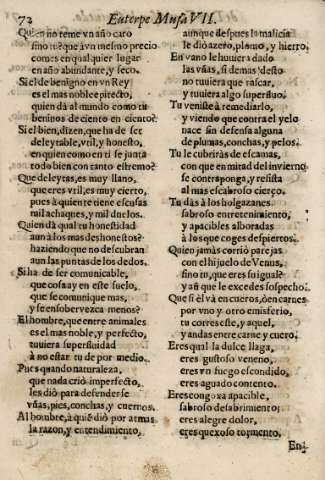 72 Euterpe Musa VII.
Quien no teme vn año caro
sino tu? que á vn mesmo precio
comes en qualquier lugar
en año abundante, y seco.
Si el de benigno en vn Rey
es el mas noble epitecto,
quien dà al mundo como tu
beninos de ciento en ciento?
Si el bien, dizen, que ha de ser
deleytable, vtil, y honesto,
en quien como en ti se junta
todo bien con tanto estremo?
Que deleytas, es muy llano,
que eres vtil, es muy cierto,
pues à quien te tiene escusas
mil achaques, y mil duelos.
Quien dà qual tu honestidad
aun à los mas deshonestos?
haziendo que no descubran
aun las puntas de los dedos.
Si ha de ser comunicable,
que cosa ay en este suelo,
que se comunique mas,
y se ensobervezca menos?
El hombre, que entre animales
es el mas noble, y perfecto,
tuviera superfluidad
à no estar tu de por medio.
Pues quando naturaleza,
que nada criò imperfecto,
les diò para defenderse
vñas, pies, conchas, y cuernos.
Al hombre, à quiẽ diò por armas
la razon, y entendimiento,
aunque despues la malicia
le diò azero, plomo, y hierro.
En vano le huviera dado
las vñas, si demàs desto
no tuviera que rascar,
y tuviera algo superfluo.
Tu veniste à remediarlo,
y viendo que contra el yelo
nace sin defensa alguna
de plumas, conchas, y pelos.
Tu le cubriràs de escamas,
con que en mitad del invierno
se contraponga, y resista
al mas escabroso cierço.
Tu dàs à los holgazanes
sabroso entretenimiento,
y apacibles alboradas
à los que coges despiertos.
Quien jamàs corriò parejas
con el hijuelo de Venus,
sino tu, que eres su igual?
y aũ que le excedes sospecho.
Que si èl và en cueros, ò en carnes
por vno y otro emisferio,
tu corres este, y aquel,
y andas entre carne y cuero.
Eres qual la dulce llaga,
eres gustoso veneno,
eres vn fuego escondido,
eres aguado contento.
Eres congoxa apacible,
sabroso desabrimiento,
eres alegre dolor,
eres quexoso tormento.
En